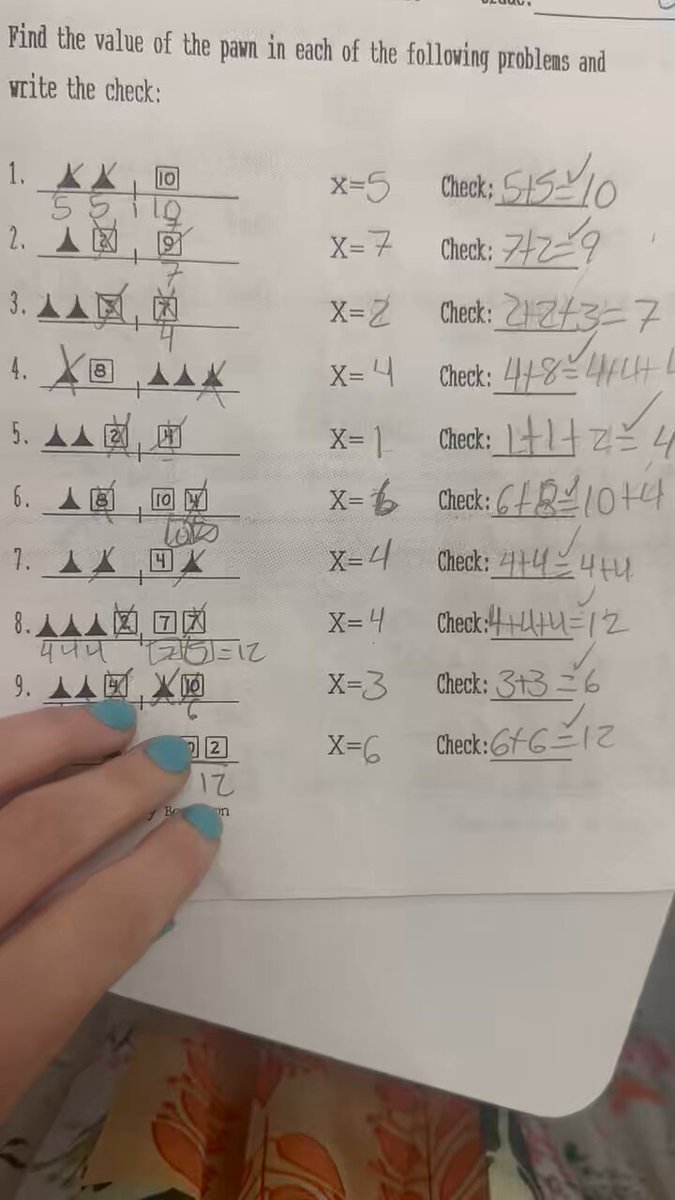 Find the value of the pawn in each of the following problems and
write the check:
1. 10 X=5 Check: 5+5=10
5 5 10
2. 2 9 X=7 Check: 7+2=9
7
3. 3 7 X=2 Check: 2+2+3=7
4
4. 8 X=4 Check: 4+8=4+4+4
5. 2 4 X=1 Check: 1+1+2=4
6. 8 10 4 X=6 Check: 6+8=10+4
7. 4 X=4 Check: 4+4=4+4
8. 2 7 7 X=4 Check: 4+4+4=12
4 4 4 7 5 =12
9. 4 10 X=3 Check: 3+3=6
6
2 X=6 Check: 6+6=12
12